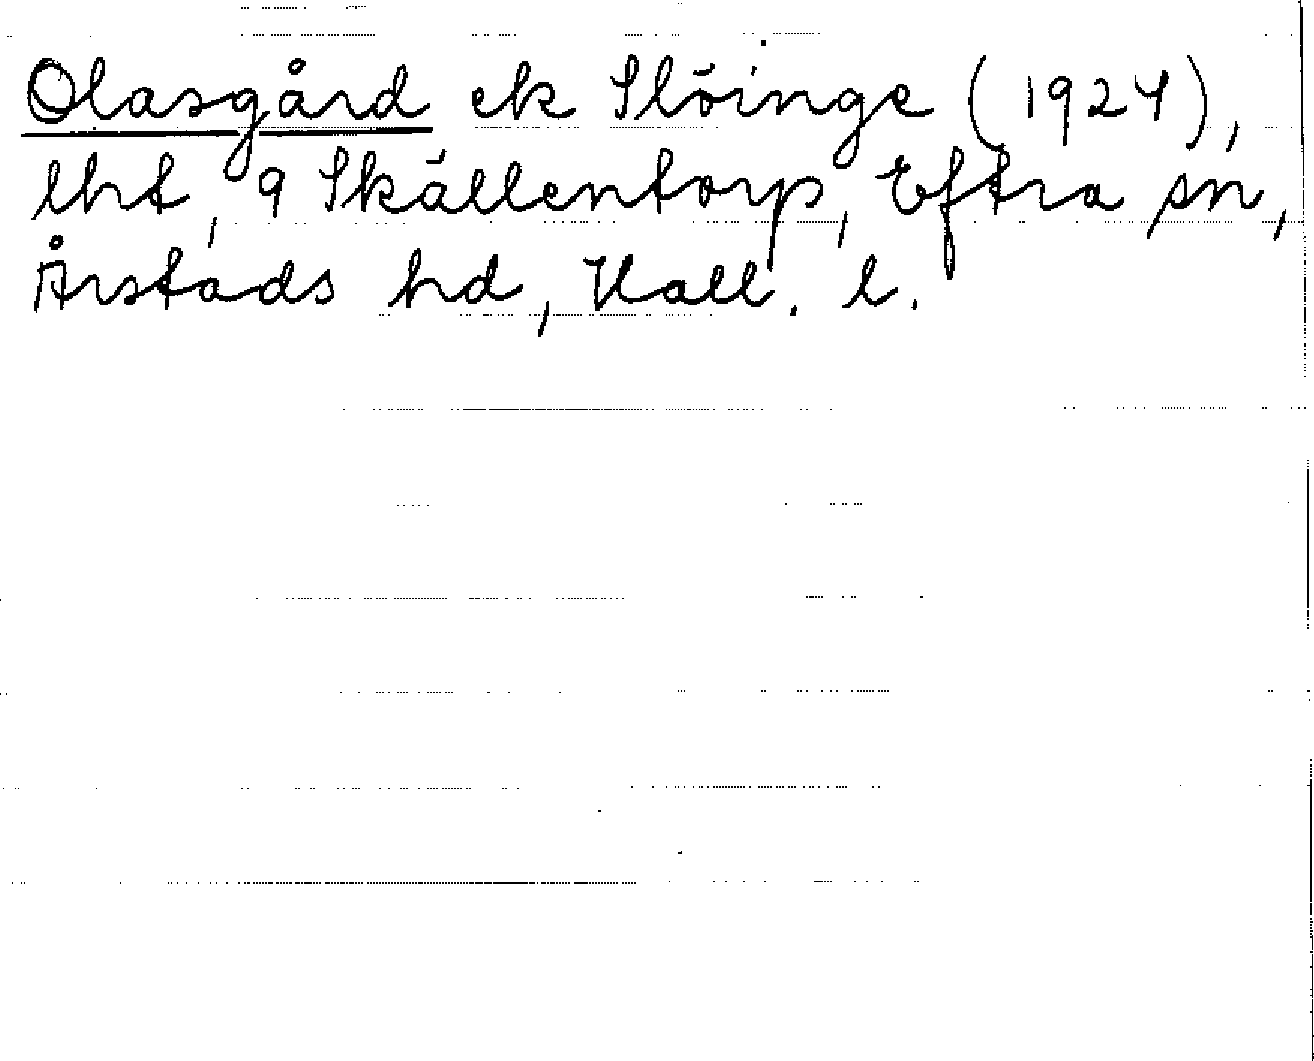 Olasgård ek Slöinge (1924),
lht, 9 Skällentorp, Eftra sn,
Årstads hd, Hall. l.